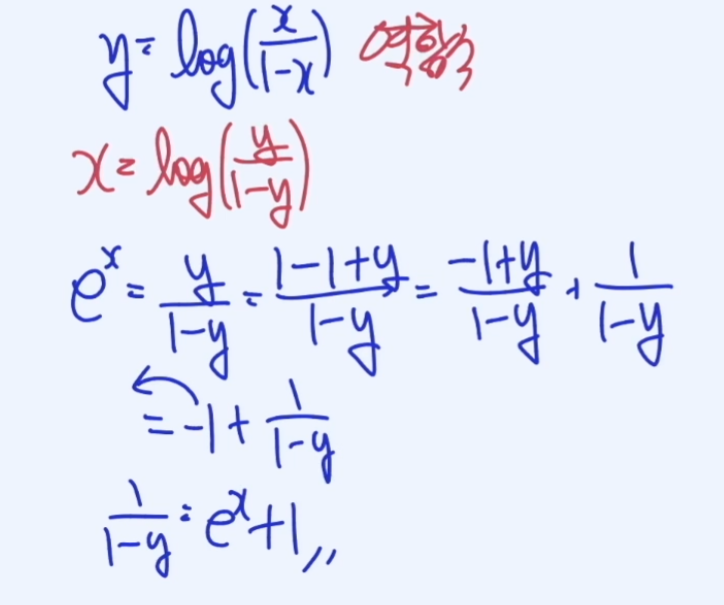 y = log(x/(1-x))
x = log(y/(1-y))
e^x = y/(1-y) = (1-1+y)/(1-y) = (-1+y)/(1-y) + 1/(1-y)
= -1 + 1/(1-y)
1/(1-y) = e^x + 1 〃